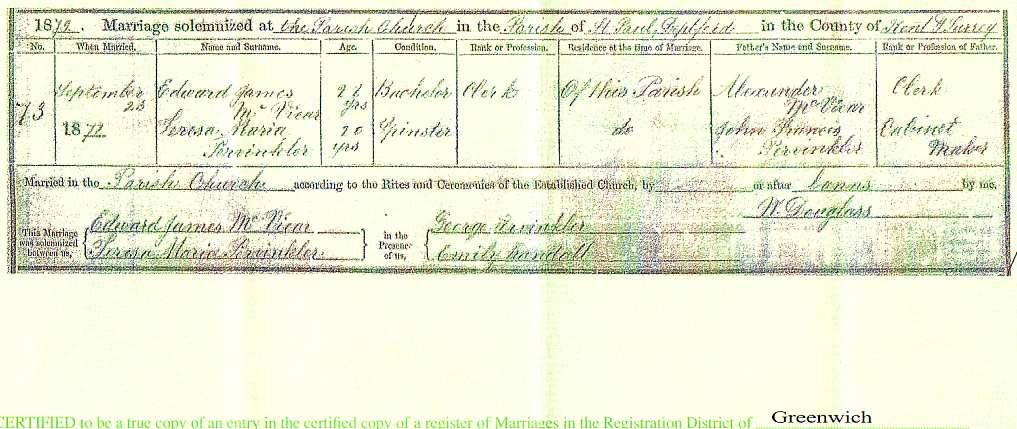 1872. Marriage solemnized at the Parish Church in the Parish of St Paul, Deptford in the County of Kent & Surrey
No. When Married. Name and Surname. Age. Condition. Rank or Profession. Residence at the time of Marriage. Father's Name and Surname. Rank or Profession of Father.
73 September 23 1872 Edward James McVicar yrs Bachelor Clerk Of this Parish Alexander McVicar Clerk
Teresa Maria Pervinkler 20 yrs Spinster do John Francis Pervinkler Cabinet Maker
Married in the Parish Church according to the Rites and Ceremonies of the Established Church, by or after banns by me,
W. Douglass
This Marriage was solemnized between us, Edward James McVicar in the Presence of us, George Pervinkler
Teresa Maria Pervinkler Emily Randall
CERTIFIED to be a true copy of an entry in the certified copy of a register of Marriages in the Registration District of Greenwich